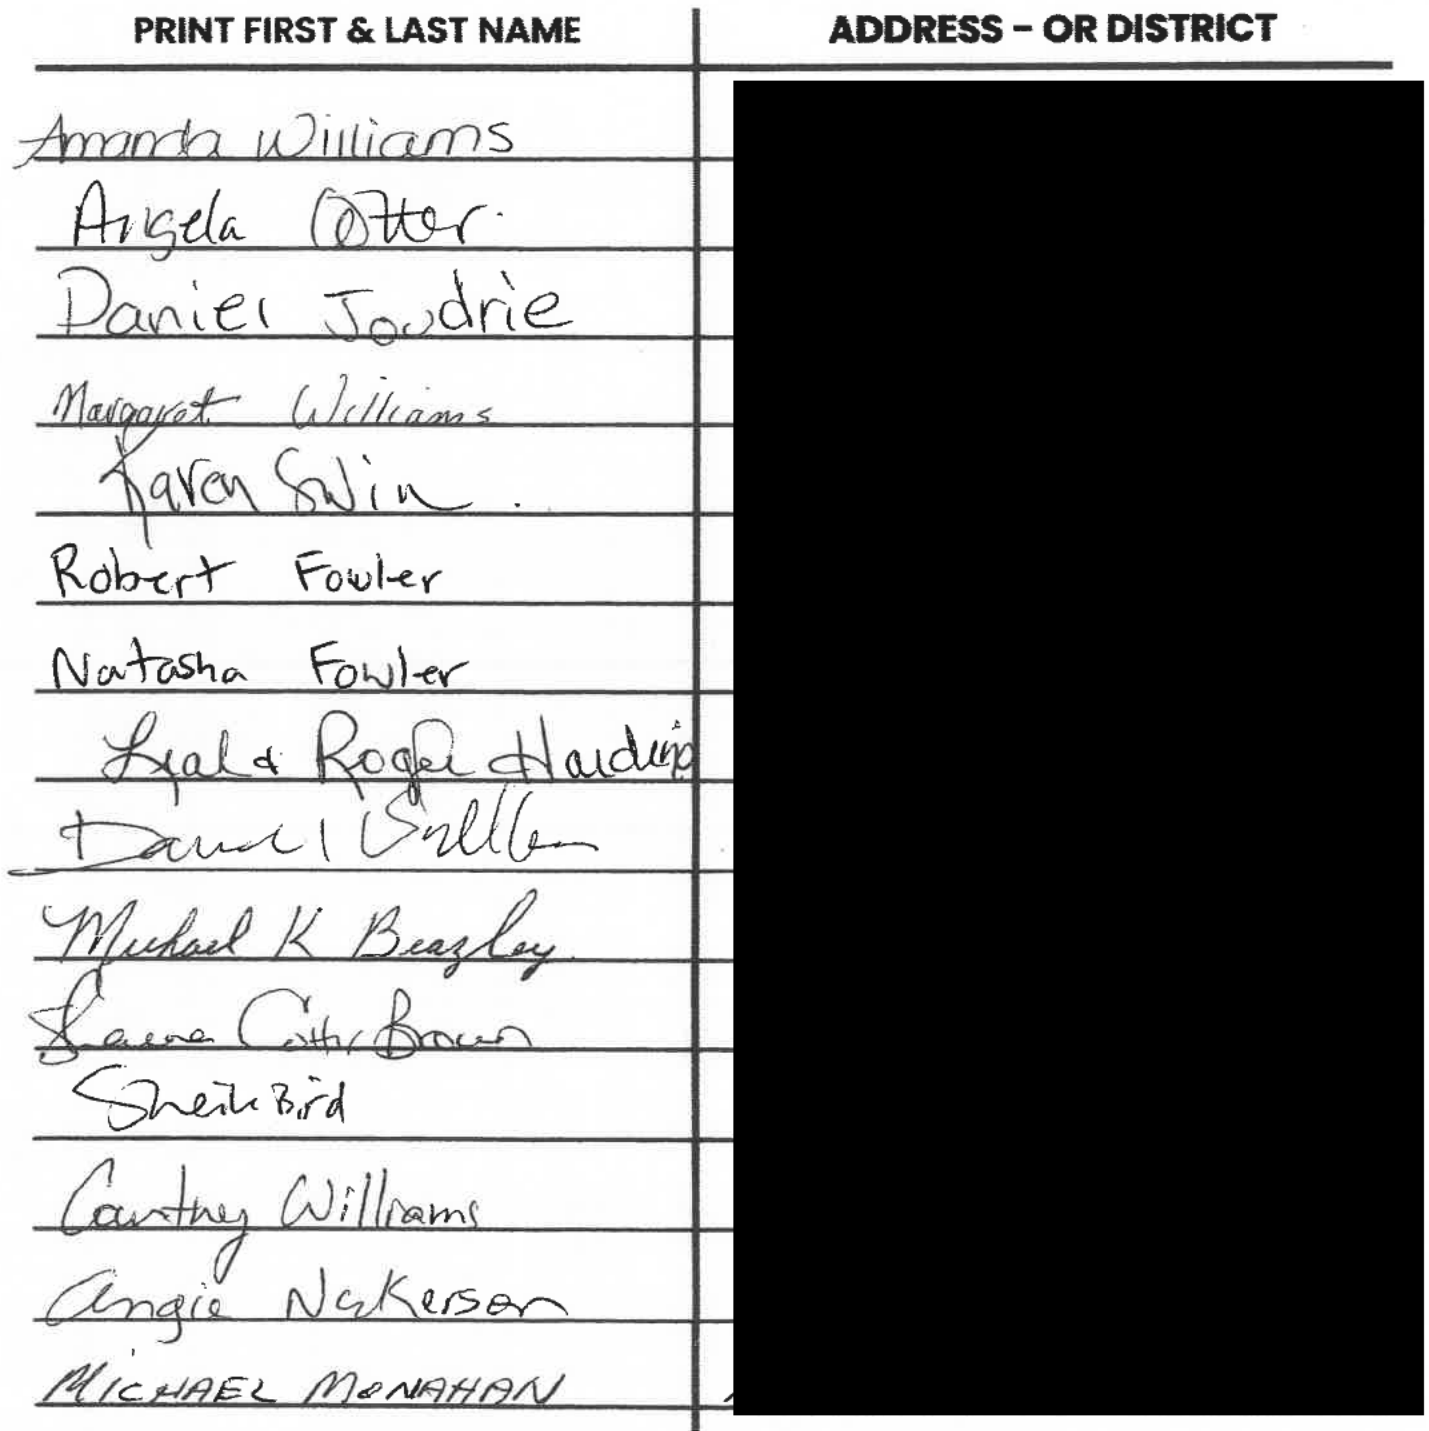 PRINT FIRST & LAST NAME ADDRESS – OR DISTRICT
Amanda Williams
Angela Otter.
Daniel Joudrie
Margaret Williams
Karen Swin .
Robert Fowler
Natasha Fowler
& Roger Harding
Daniel
Michael K Beazley
Brown
Bird
Courtney Williams
Angie Nickerson
MICHAEL MONAHAN